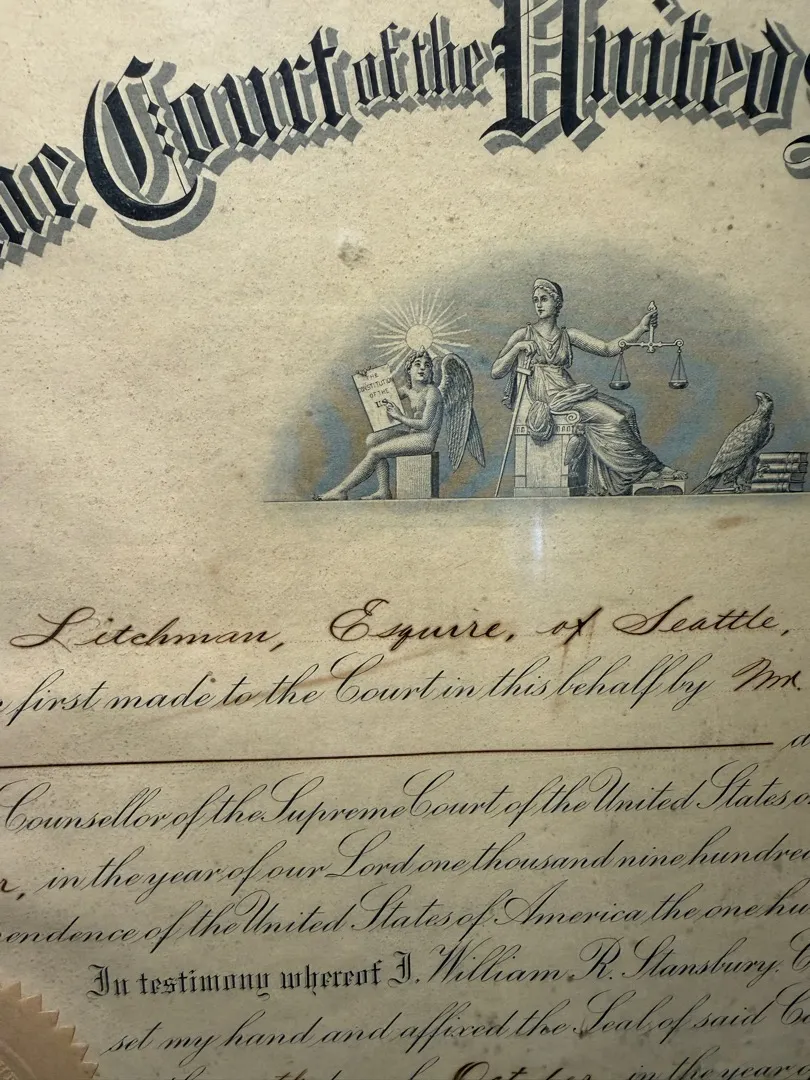 he Court of the United S
THE
CONSTITUTION
OF THE
U.S.
Litchman, Esquire, of Seattle,
first made to the Court in this behalf by Mr.
Counsellor of the Supreme Court of the United States o
in the year of our Lord one thousand nine hundred
pendence of the United States of America the one hu
In testimony whereof I, William R. Stansbury, C
set my hand and affixed the Seal of said Co
October in the year o